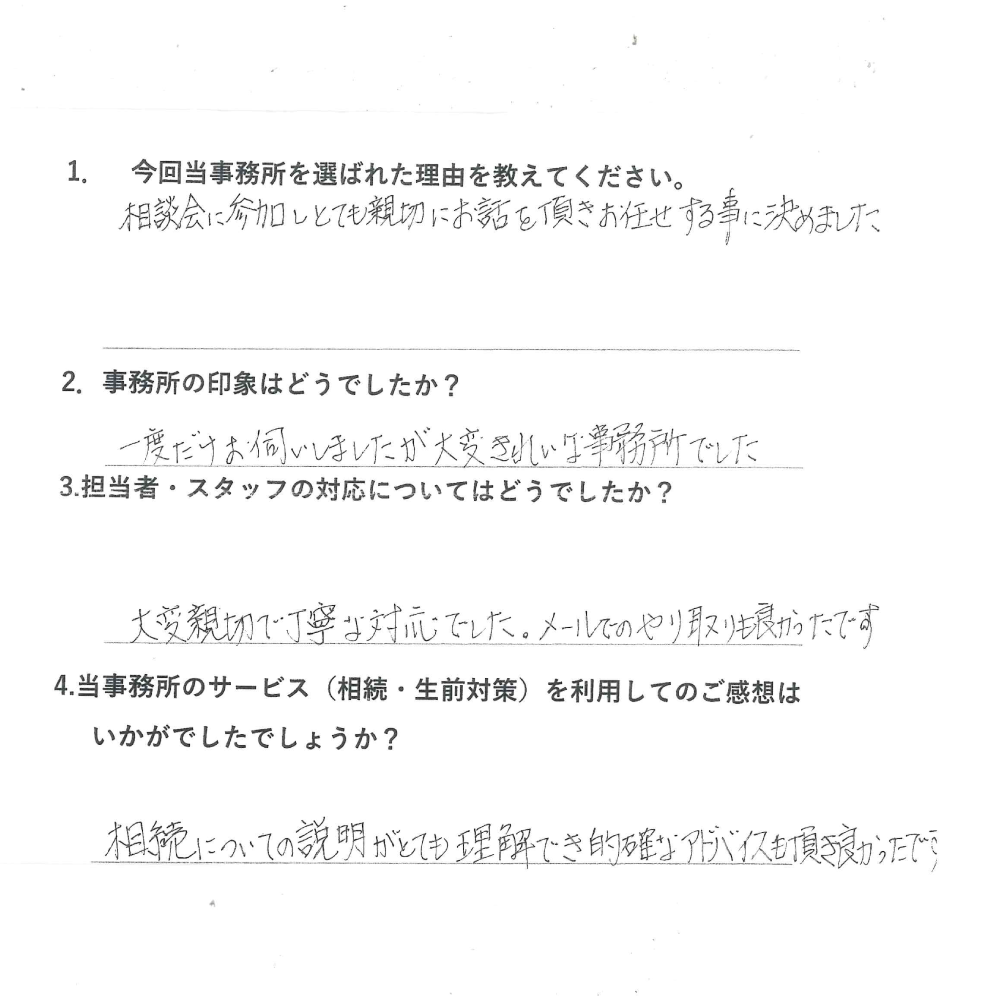 1. 今回当事務所を選ばれた理由を教えてください。
相談会に参加しとても親切にお話を頂きお任せする事に決めました
2. 事務所の印象はどうでしたか？
一度だけお伺いしましたが大変きれいな事務所でした
3.担当者・スタッフの対応についてはどうでしたか？
大変親切で丁寧な対応でした。メールでのやり取りも良かったです
4.当事務所のサービス（相続・生前対策）を利用してのご感想は
いかがでしたでしょうか？
相続についての説明がとても理解でき的確なアドバイスも頂き良かったです